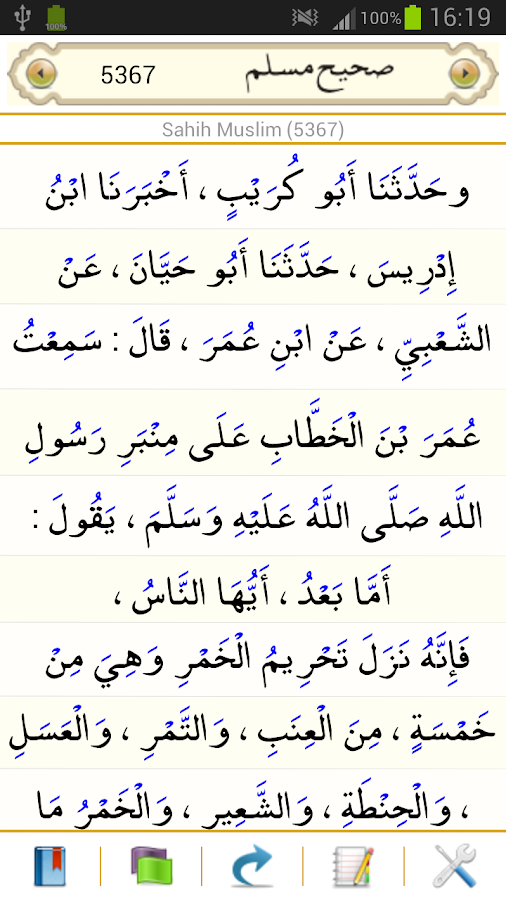 100%
100% 16:19
5367 صحيح مسلم
Sahih Muslim (5367)
وحَدَّثَنَا أَبُو كُرَيْبٍ ، أَخْبَرَنَا ابْنُ
إِدْرِيسَ ، حَدَّثَنَا أَبُو حَيَّانَ ، عَنْ
الشَّعْبِيِّ ، عَنْ ابْنِ عُمَرَ ، قَالَ : سَمِعْتُ
عُمَرَ بْنَ الْخَطَّابِ عَلَى مِنْبَرِ رَسُولِ
اللَّهِ صَلَّى اللَّهُ عَلَيْهِ وَسَلَّمَ ، يَقُولَ :
أَمَّا بَعْدُ ، أَيُّهَا النَّاسُ ،
فَإِنَّهُ نَزَلَ تَحْرِيمُ الْخَمْرِ وَهِيَ مِنْ
خَمْسَةٍ ، مِنَ الْعِنَبِ ، وَالتَّمْرِ ، وَالْعَسَلِ
، وَالْحِنْطَةِ ، وَالشَّعِيرِ ، وَالْخَمْرُ مَا